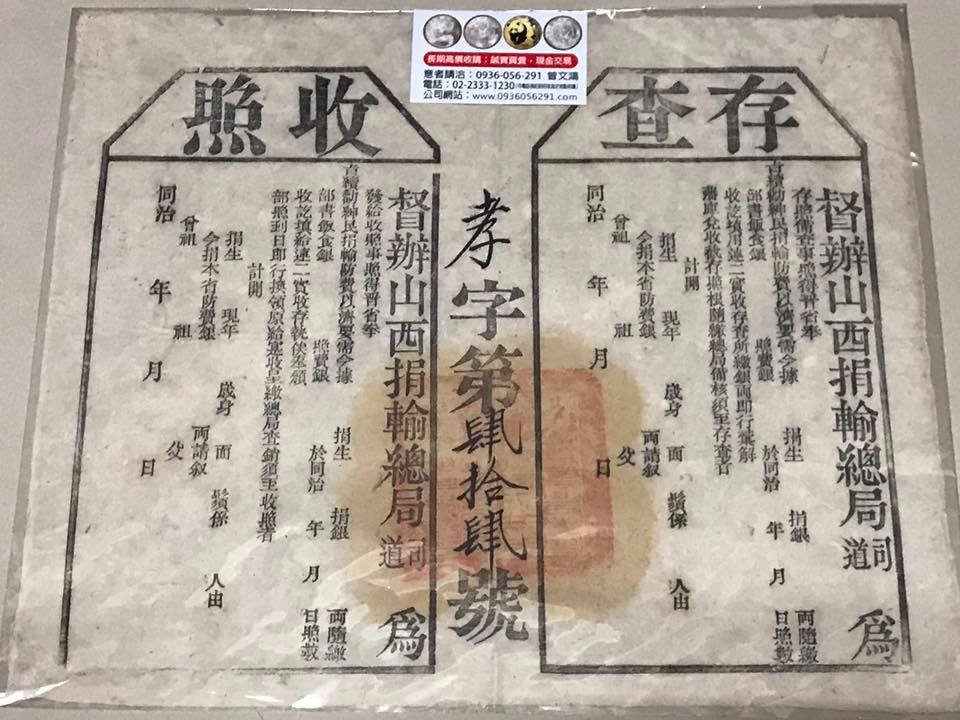 長期高價收購：誠實買賣，現金交易
意者請洽：0936-056-291 曾文鴻
電話：02-2333-1230
公司網站：www.0936056291.com
存查
督辦山西捐輸總局司道 為
存照備查事照得晉省奉
旨續勸紳民捐輸防費以濟要需今據 捐生 捐銀 兩隨繳
部書飯食銀 照費銀 於同治 年 月 日照數
收訖填用連二實收存查所繳銀兩即行彙解
藩庫兌收截存照根隨稼總局備核須至存查者
計開
捐生 現年 歲身 面 鬚係 人由
今捐本省防費銀 兩請敘
曾祖 祖 父
同治 年 月 日
孝字第肆拾肆號
收照
督辦山西捐輸總局司道 為
發給收照事照得晉省奉
旨續勸紳民捐輸防費以濟要需今據 捐生 捐銀 兩隨繳
部書飯食銀 照費銀 於同治 年 月 日照數
收訖填給連二實收存執俟奉頒
部照到日即行換領原給實收呈繳總局查銷須至收照者
計開
捐生 現年 歲身 面 鬚係 人由
今捐本省防費銀 兩請敘
曾祖 祖 父
同治 年 月 日